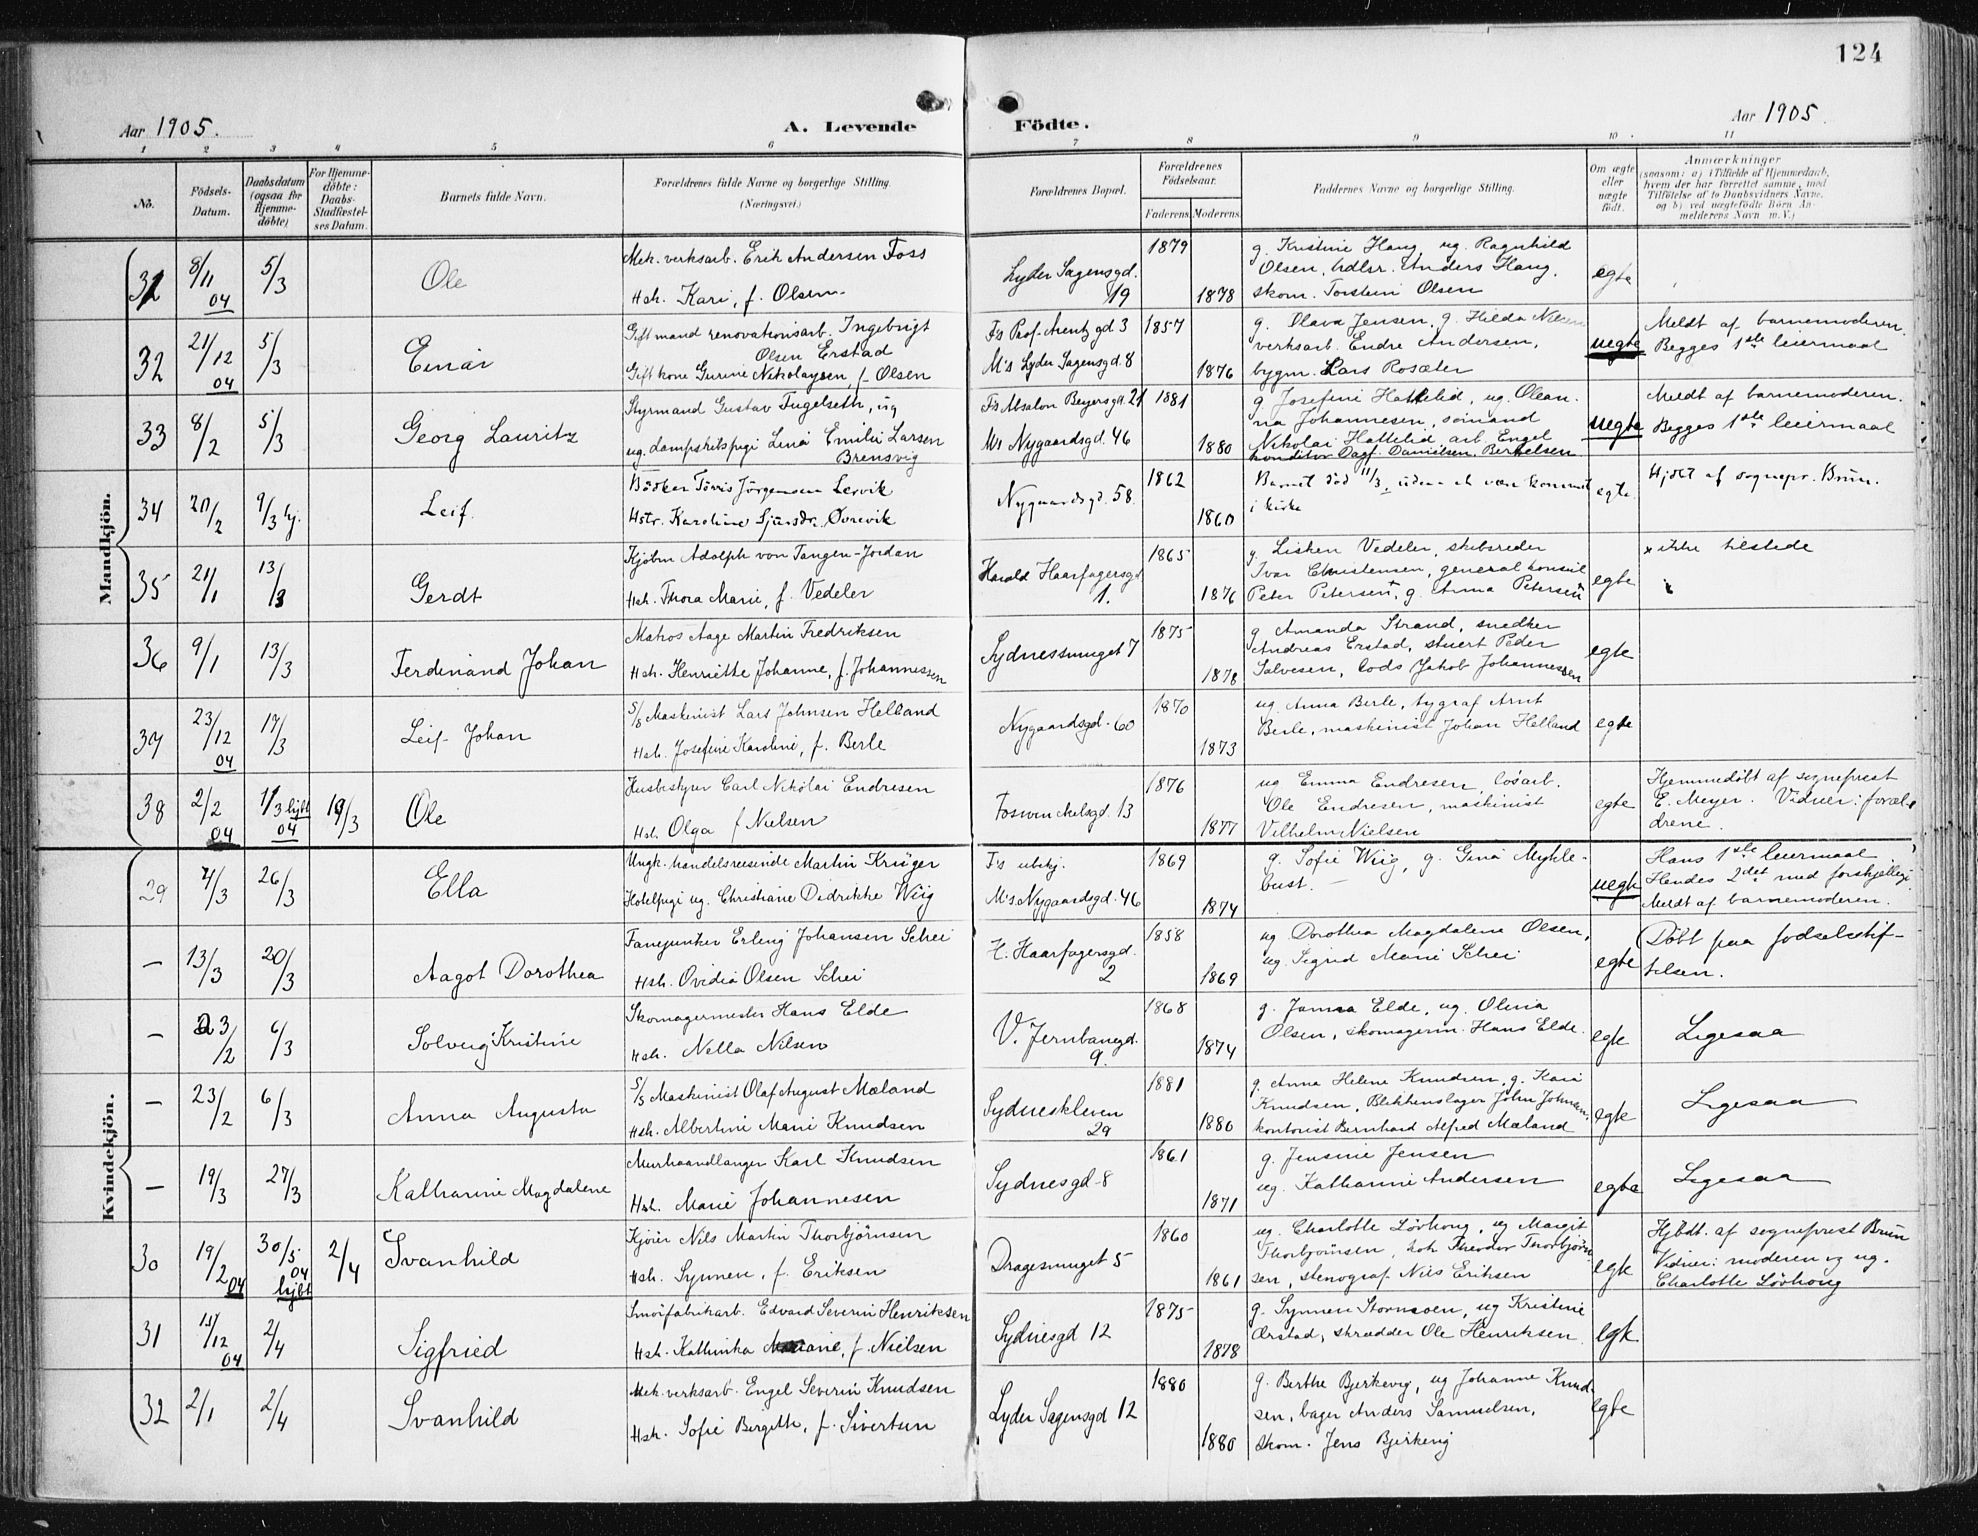 124
Aar 1905.
A. Levende Födte.
Aar 1905
1 2 3 4 5 6 7 8 9 10 11
No.
Födsels-Datum.
Daabsdatum (ogsaa for Hjemme-döbte)
For Hjemme-döbte: Daabs-Stadfæstel-ses Datum.
Barnets fulde Navn.
Forældrenes fulde Navne og borgerlige Stilling. (Næringsvei.)
Forældrenes Bopæl.
Forældrenes Födselsaar.
Faderens. Moderens.
Faddernes Navne og borgerlige Stilling.
Om ægte eller uægte födt.
Anmærkninger
(saasom: a) i Tilfælde af Hjemmedaab, hvem der har forrettet samme, med Tilföielse af to Daabsvidners Navne, og b) ved uægtefödte Börn An-melderens Navn m. V.)
Mandkjön.
31 8/11 04 5/3 Ole
Mek. verksarb. Erik Andersen Foss
Hstr. Kari, f. Olsen
Lyder Sagensgd. 19
1879 1878
g. Kristine Haug, ug. Ragnhild
Olsen, Anders Haug,
skom. Torstein Olsen
egte
32 21/12 04 5/3 Einar
Gift mand renovationsarb. Ingebrigt
Olsen Erstad
Gift kone Gurine Nikolaysen, f. Olsen
F's Prof. Arentz gd 3
M's Lyder Sagensgd. 8
1857 1876
g. Olava Jensen, g. Hilda
verksarb. Endre Andersen,
bygm. Lars Rosæter
uegte
Meldt af barnemoderen.
Begges 1ste leiermaal
33 8/2 5/3 Georg Lauritz
Styrmand Gustav Fugelseth, ug
ug. dampskibspige Lina Emilie Larsen
Brensvig
F's Absalon Beyersgd. 21
M's Nygaardsgd. 46
1881 1880
g Josefine Hattelid, ug. Olean-
na Johannesen, sömand
Nikolai Hattelid, arb. Engel
konditor Dagf. Danielsen Berthelsen
uegte
Meldt af barnemoderen.
Begges 1ste leiermaal
34 20/2 9/3 hj. Leif.
Bödker Törris Jörgensen Lervik
Hstr. Karoline Sjursdr. Övrevik
Nygaardsgd. 58
1862 1860
Barnet död 11/3, uden at være kommet
i kirke
egte
Hjdbt af sognepr. Brun.
35 21/1 13/3 Gerdt
Kjöbm Adolph von Tangen-Jordan
Hstr. Thora Marie, f. Vedeler
Harald Haarfagersgd. 1.
1865 1876
g. Lisken Vedeler, skibsreder
Ivar Christensen, generalkonsul
Peter Petersen, g. Anna Petersen
egte
x ikke tilstede
36 9/1 13/3 Ferdinand Johan
Matros Aage Martin Fredriksen
Hstr. Henriette Johanne, f. Johannessen
Sydnessmuget 7
1875 1878
g Amanda Strand, snedker
Andreas Erstad, stuert Peder
Salvesen, lods Jakob Johannessen
egte
37 23/12 04 17/3 Leif Johan
S/S Maskinist Lars Johnsen Helland
Hstr. Josefine Karoline, f. Berle
Nygaardsgd. 60
1870 1873
ug. Anna Berle, tygraf Arnt
Berle, maskinist Johan Helland
egte
38 2/2 04 1/3 hjbt 04 19/3 Ole
Husbestyrer Carl Nikolai Endresen
Hstr. Olga f Nielsen
Foswinckelsgd. 13
1876 1877
ug Emma Endresen, lösarb.
Ole Endresen, maskinist
Vilhelm Nielsen
egte
Hjemmedøbt af sogneprest
E. Meyer. Vidner: foræl-
drene.
Kvindekjön.
29 7/3 26/3 Ella
Ungk. handelsreisende Martin Krüger
Hotelpige ug. Christiane Didrikke Wiig
F's ubekj.
M's. Nygaardsgd. 46
1869 1874
g. Sofie Wiig, g. Gina Mykle-
bust. -
uegte
Hans 1ste leiermaal
Hendes 2det med forskjellige
Meldt af barnemoderen.
— 13/3 20/3 Aagot Dorothea
Fanejunker Erling Johansen Schei
Hstr. Ovidia Olsen Schei
H. Haarfagersgd. 2
1858 1869
ug Dorothea Magdalene Olsen,
ug. Sigrid Marie Schei
egte
Døbt paa fødselsstif-
telsen.
— 23/2 6/3 Solveig Kristine
Skomagermester Hans Elde
Hstr. Nella Nilsen
V. Jernbanegd. 9.
1868 1874
g. Elde, ug. Olina
Olsen, skomagerm. Hans Elde.
egte
Ligesaa
— 23/2 6/3 Anna Augusta
S/S Maskinist Olaf August Mæland
Hstr. Albertine Marie Knudsen
Sydneskleven 29
1881 1880
g. Anna Helene Knudsen, g. Kari
Knudsen, Blikkenslager John Johnsen,
kontorist Bernhard Alfred Mæland
egte
Ligesaa
— 19/3 27/3 Katharine Magdalene
Murhaandlanger Karl Knudsen
Hstr. Marie Johannesen
Sydnesgd. 8
1861 1871
g. Jensine Jensen
ug. Katharine Andersen
egte
Ligesaa
30 19/2 04 30/5 04 hjbt 2/4 Svanhild
Kjörer Nils Martin Thorbjörnsen
Hstr. Synneve, f. Eriksen
Dragesmuget 5
1860 1861
ug. Charlotte Lövhoug, ug Margit
Thorbjörnsen, Theodor Thorbjörn-
sen, stenograf Nils Eriksen
egte
Hjbdt. af sogneprest Brun
Vidner: moderen og ug.
Charlotte Lövhoug
31 15/12 04 2/4 Sigfried
Smörfabrikarb. Edvard Severin Henriksen
Hstr. Kathinka Marie, f. Nielsen
Sydnesgd 12
1875 1878
g. Synneve ug Kristine
Ørstad, skrædder Ole Henriksen
egte
32 2/1 2/4 Svanhild
Mek. verksarb. Engel Severin Knudsen
Hstr. Sofie Birgitte, f. Sivertsen
Lyder Sagensgd 12
1880 1880
g. Berthe Bjerkevig, ug Johanne Knud-
sen, bager Anders Samuelsen,
skom. Jens Bjerkevig
egte